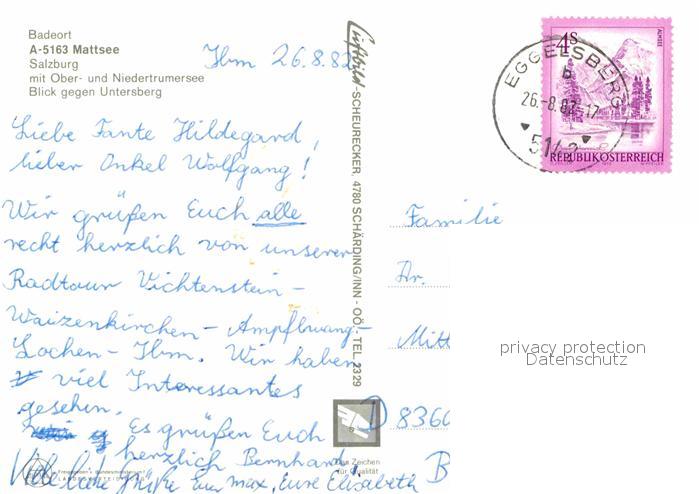 Badeort
A-5163 Mattsee
Salzburg
mit Ober- und Niedertrumersee
Blick gegen Untersberg
Ibm 26.8.82
Liebe Tante Hildegard,
lieber Onkel Wolfgang!
Wir grüßen Euch alle
recht herzlich von unserer
Radtour Vichtenstein-
Waizenkirchen-Ampflwang-
Lochen-Ibm. Wir haben
viel Interessantes
gesehen.
Es grüßen Euch
herzlich Bernhard,
Viele liebe Grüße Euer Max, Eure Elisabeth
Luftbild-SCHEURECKER, 4780 SCHÄRDING/INN - OÖ. - TEL. 2329
Das Zeichen
für Qualität
EGGELSBERG
b
26.-8.82-17
5142
4 S
ALMSEE
REPUBLIK ÖSTERREICH
Familie
Dr.
Mitt
D 8360
B
privacy protection
Datenschutz